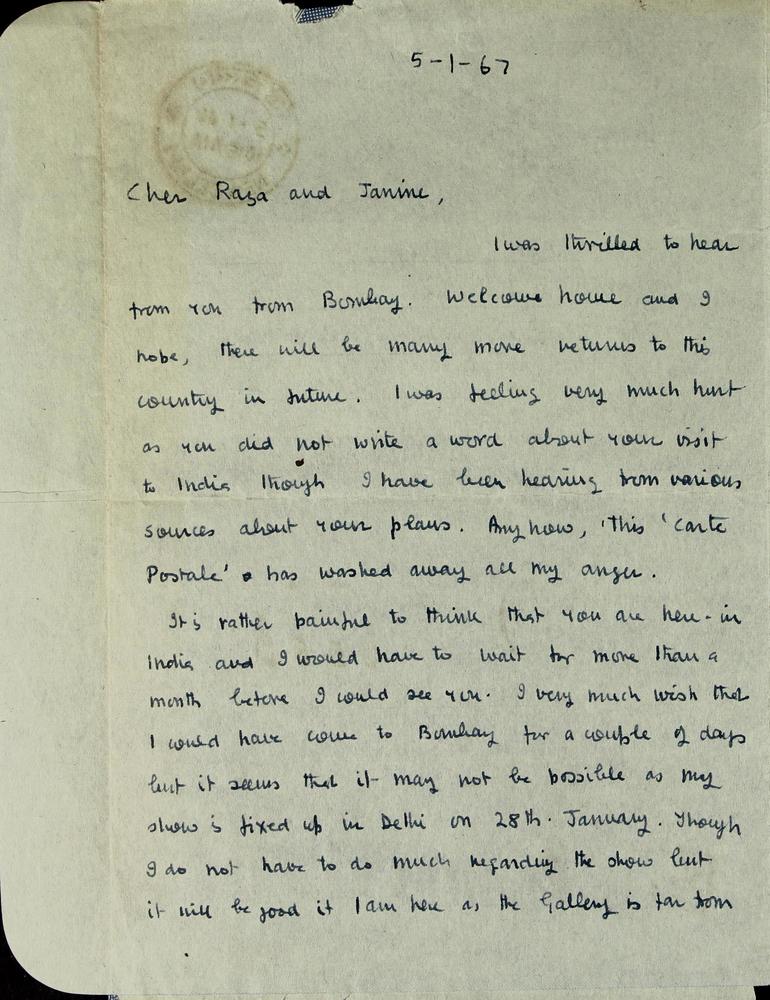 5-1-67
Cher Raza and Janine,
I was thrilled to hear
from you from Bombay. Welcome home and I
hope, there will be many more returns to this
country in future. I was feeling very much hurt
as you did not write a word about your visit
to India though I have been hearing from various
sources about your plans. Anyhow, this 'Carte
Postale' has washed away all my anger.
It is rather painful to think that you are here - in
India and I would have to wait for more than a
month before I could see you. I very much wish that
I could have come to Bombay for a couple of days
but it seems that it may not be possible as my
show is fixed up in Delhi on 28th. January. Though
I do not have to do much regarding the show but
it will be good if I am here as the Gallery is far from